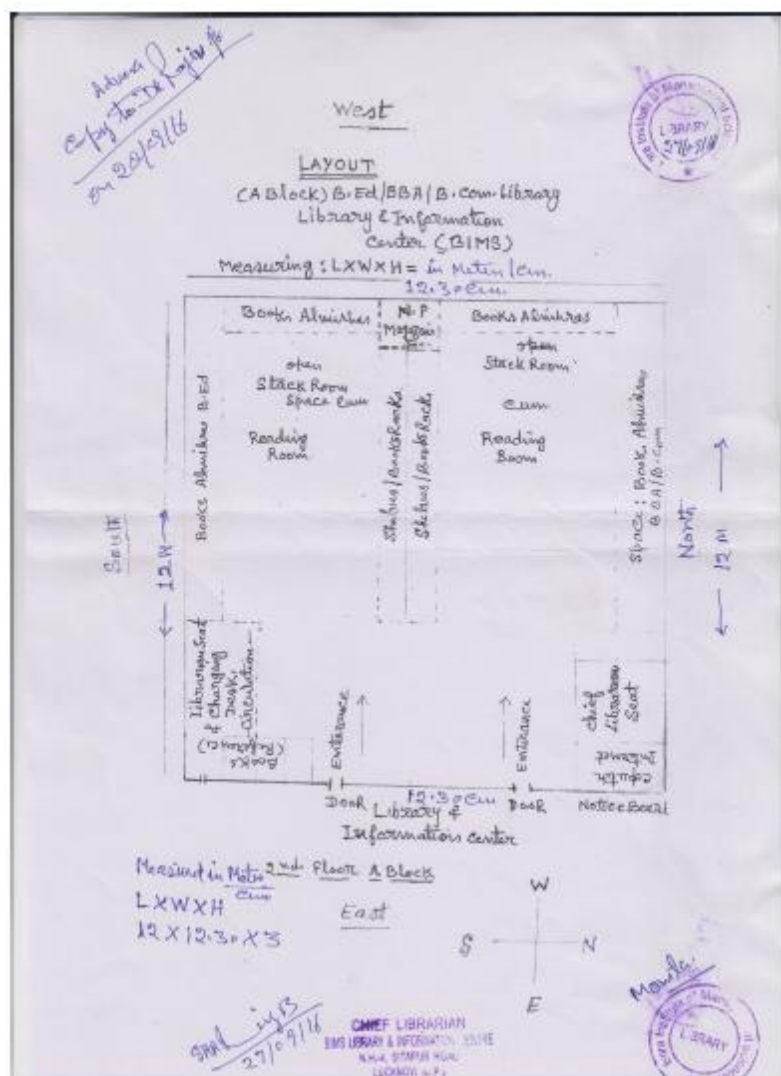 Copy to Dr Rajiv
on 20/09/16
LIBRARY
27/09/16
West
LAYOUT
(A Block) B.Ed/BBA/B.Com. Library
Library & Information
Center (BIMS)
Measuring : L X W X H = in Meter/cm.
12.30 Cm.
Books Almirhas
N.P
Books Almirhas
open
Stack Room
Space Cum
Reading
Room
open
Stack Room
Cum
Reading
Room
Books Almihras B.Ed
Shelves/Book Racks
Shelves/Book Racks
Space : Book Almihras
BBA/B.Com
South
12 M
North
12 M
Librarian Seat
& Charging
Desk
Circulation
Books
(Reference)
Enterance
Enterance
Chief
Librarian
Seat
Internet
DOOR
12.30 Cm
DOOR
Notice Board
Library &
Information center
Measured in Metre
Cm
2nd Floor A Block
L X W X H
12 X 12.30 X 3
East
W
S
N
E
27/09/16
CHIEF LIBRARIAN
BIMS LIBRARY & INFORMATION CENTRE
SITAPUR ROAD
LUCKNOW
LIBRARY